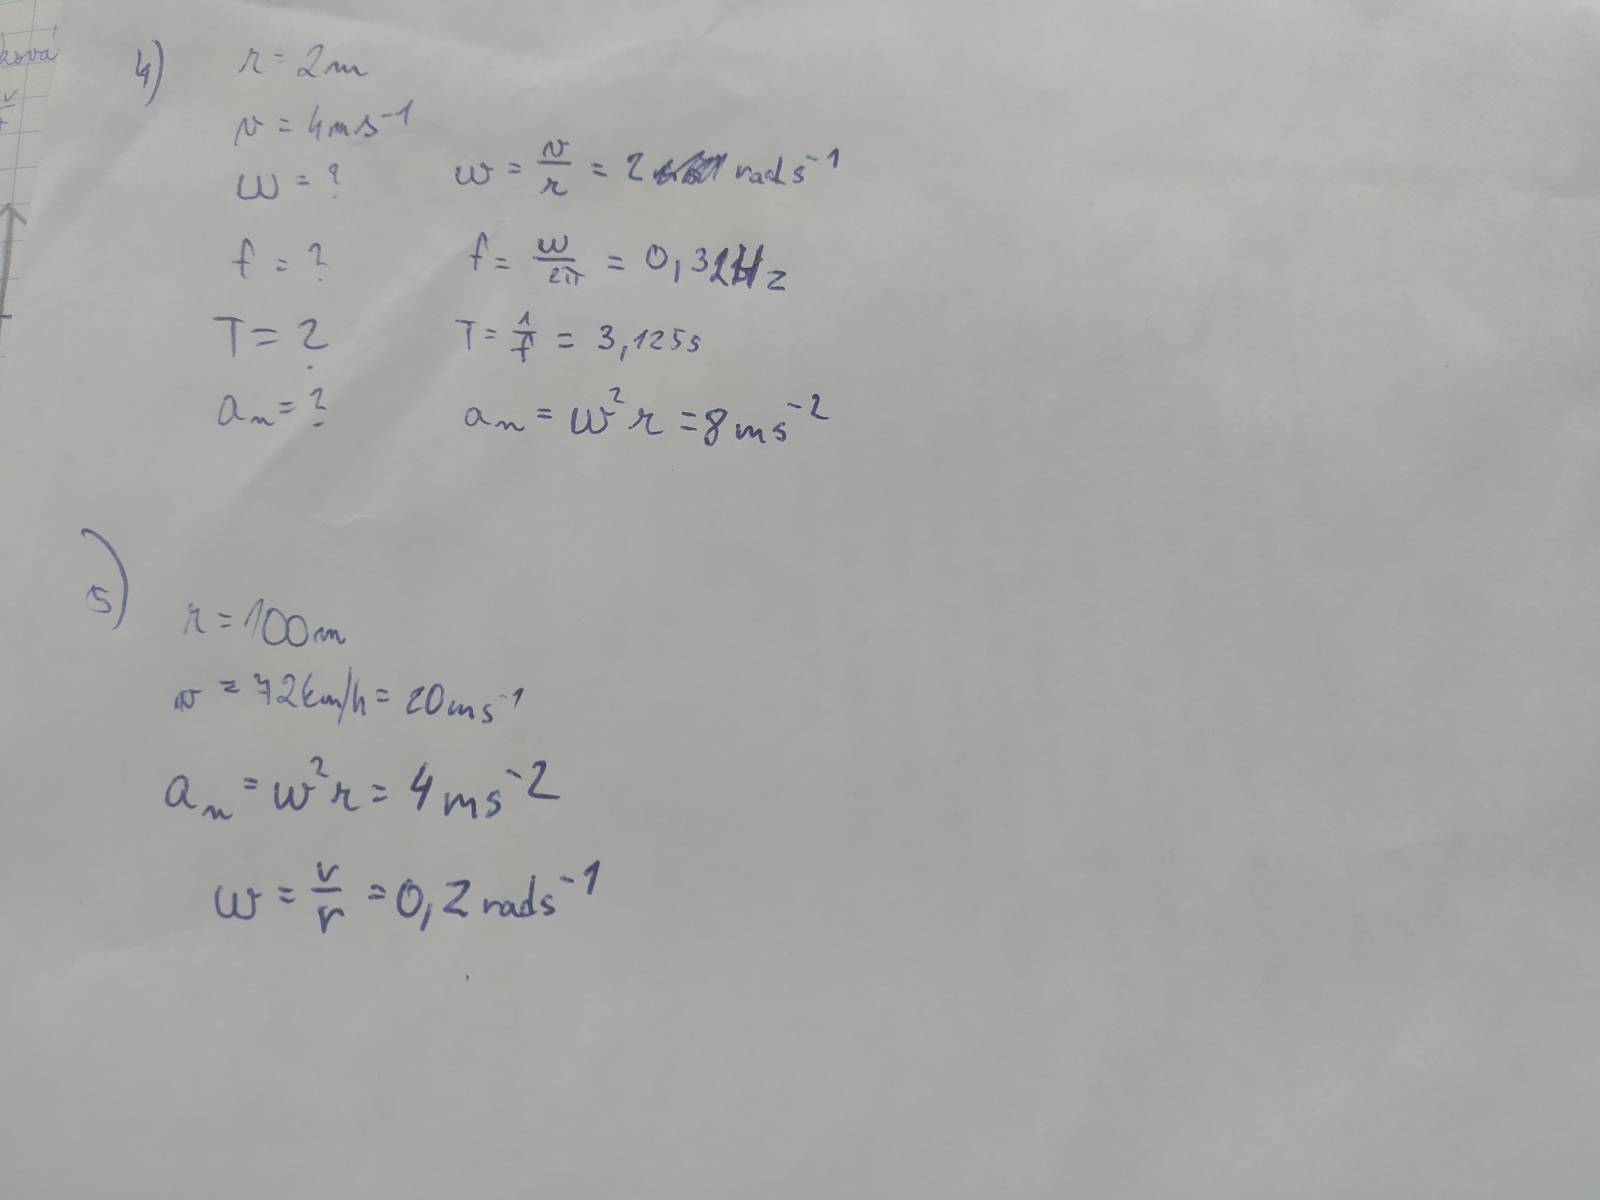 4) r = 2m
v = 4ms⁻¹
ω = ? ω = v/r = 2 rads⁻¹
f = ? f = ω/2π = 0,32Hz
T = ? T = 1/f = 3,125s
aₙ = ? aₙ = ω²r = 8ms⁻²
5)
r = 100m
v = 72km/h = 20ms⁻¹
aₙ = ω²r = 4ms⁻²
ω = v/r = 0,2rads⁻¹